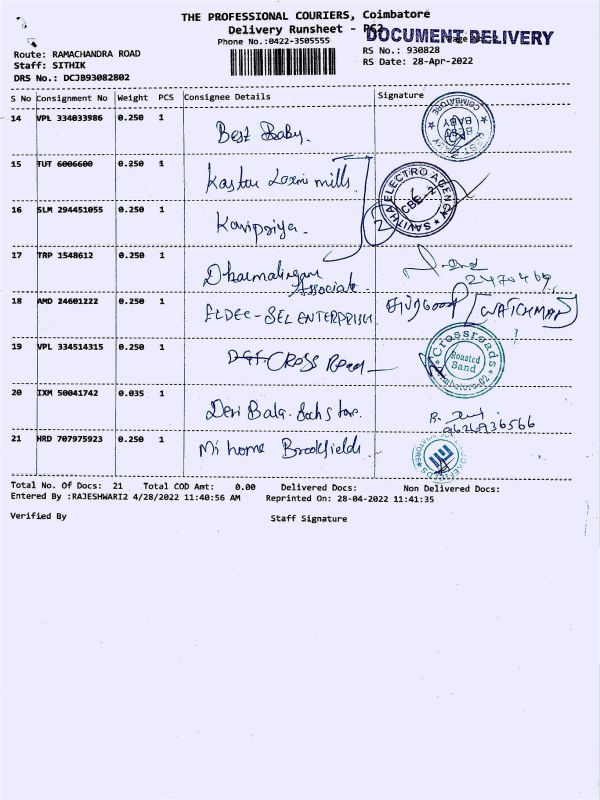 THE PROFESSIONAL COURIERS, Coimbatore
Delivery Runsheet -
DOCUMENT DELIVERY
Phone No.:0422-3505555
Route: RAMACHANDRA ROAD
RS No.: 930828
Staff: SITHIK
RS Date: 28-Apr-2022
DRS No.: DCJB93082802
S No Consignment No Weight PCS Consignee Details Signature
14 VPL 334033986 0.250 1 Best Baby. BEST BABY COIMBATORE
15 TUT 6006600 0.250 1 Laxmi mills
SAVITHA ELECTRO AGENCY CBE-2
16 SLM 294451055 0.250 1 Kavipriya. 2
17 TRP 1548612 0.250 1 Dharmalingam
Associate
18 AMD 24601222 0.250 1 ELDEC-SEL ENTERPRISES (WATCHMAN)
19 VPL 334514315 0.250 1 CROSS Road
Crossroads Roasted Sand Coimbatore-02
20 IXM 50041742 0.035 1 Devi Bala
9626936566
21 HRD 707975923 0.250 1 Mi home Brookfields
Total No. Of Docs: 21 Total COD Amt: 0.00 Delivered Docs: Non Delivered Docs:
Entered By :RAJESHWARI2 4/28/2022 11:40:56 AM Reprinted On: 28-04-2022 11:41:35
Verified By Staff Signature